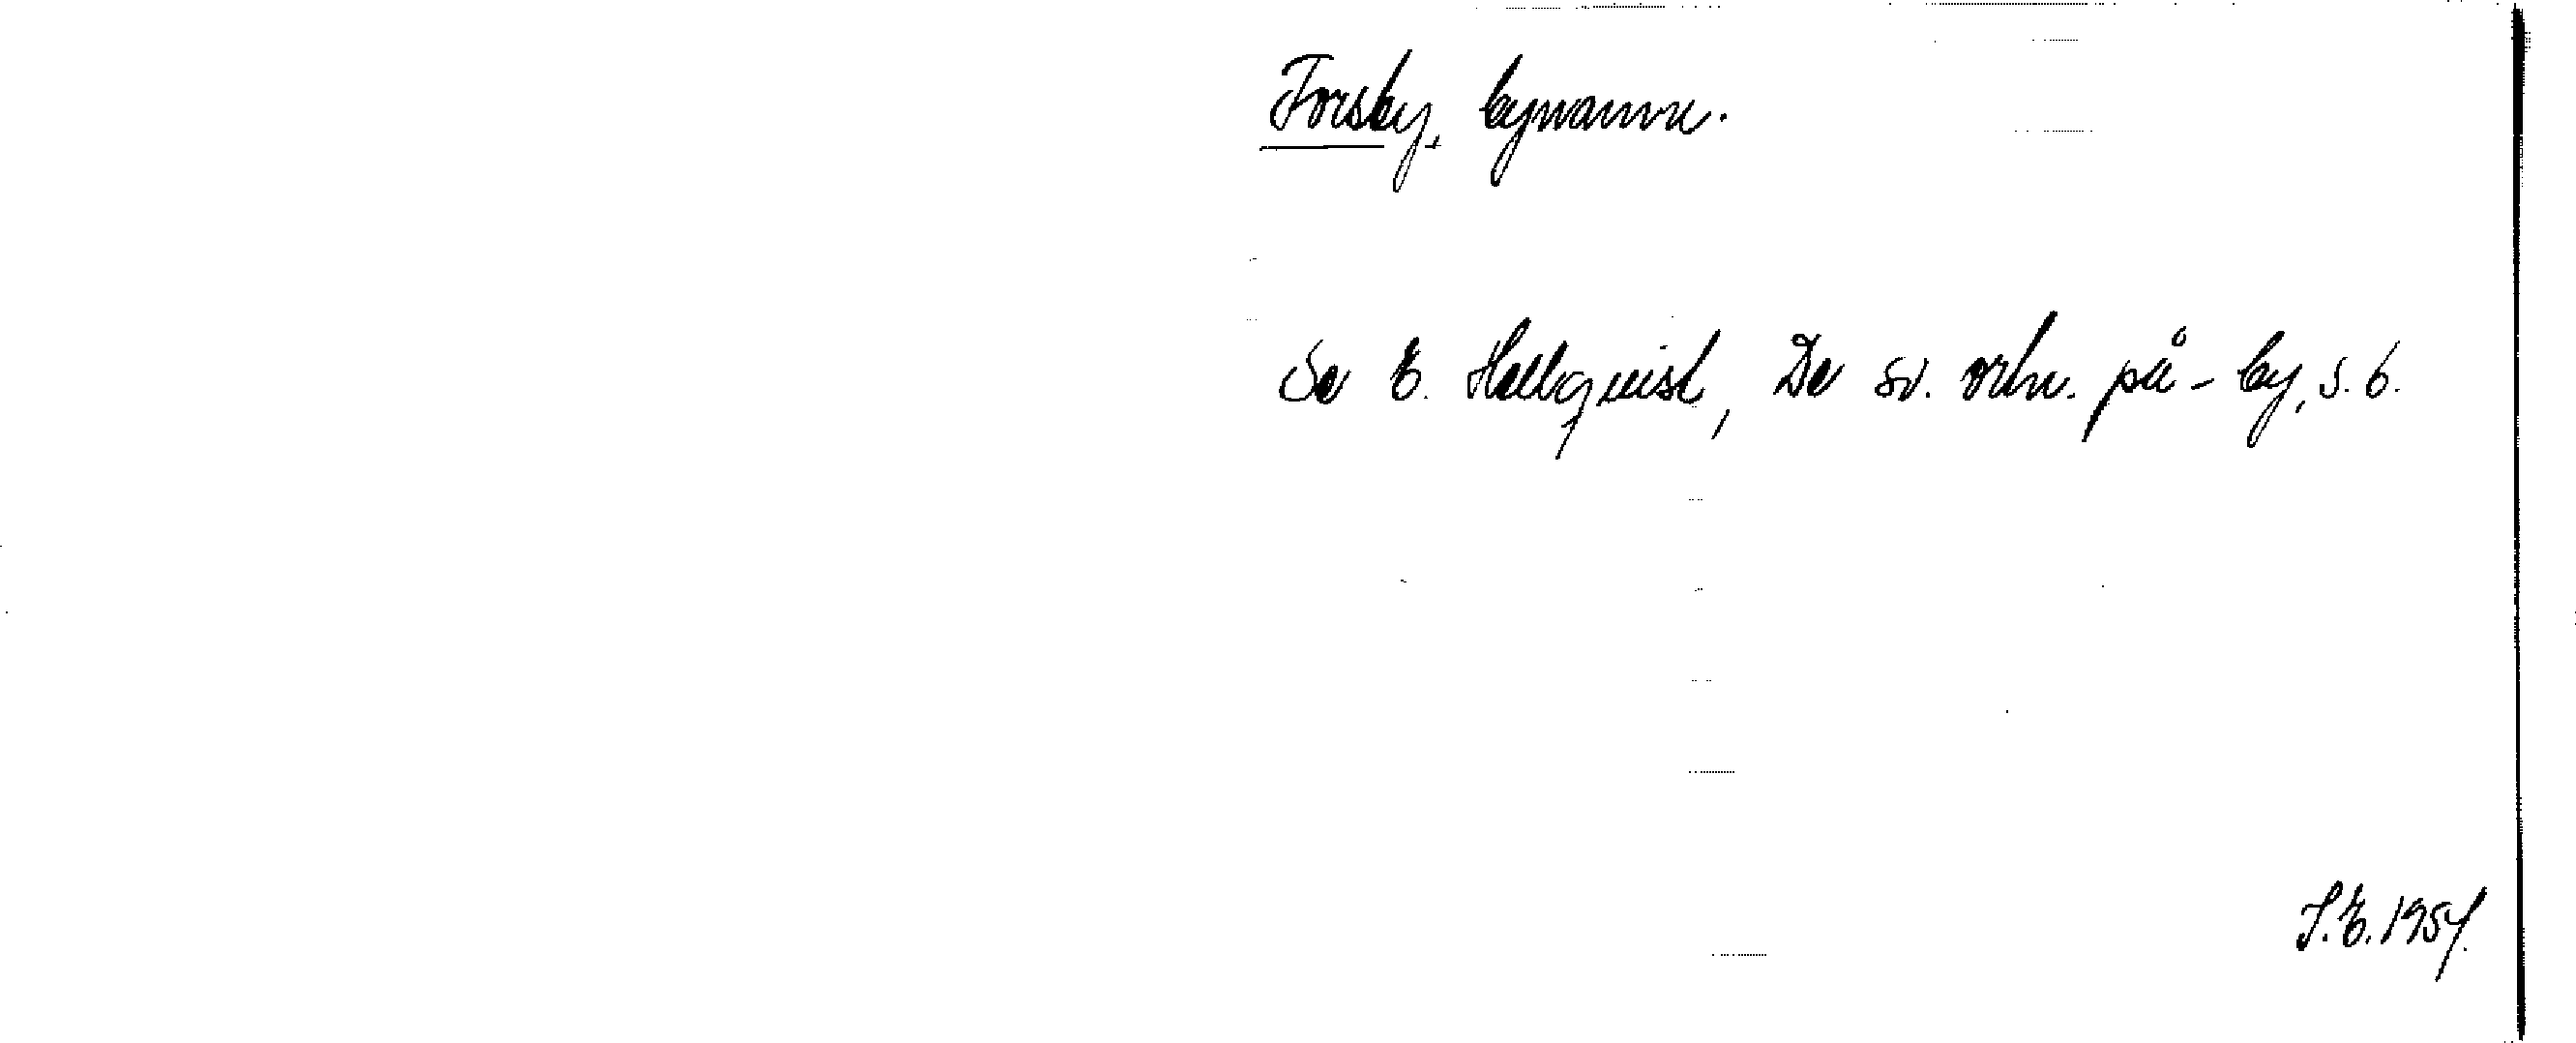 Forsby, bynamn.
Se E. Hellquist, De sv. ortn. på -by, s. 6.
S.E. 1954.